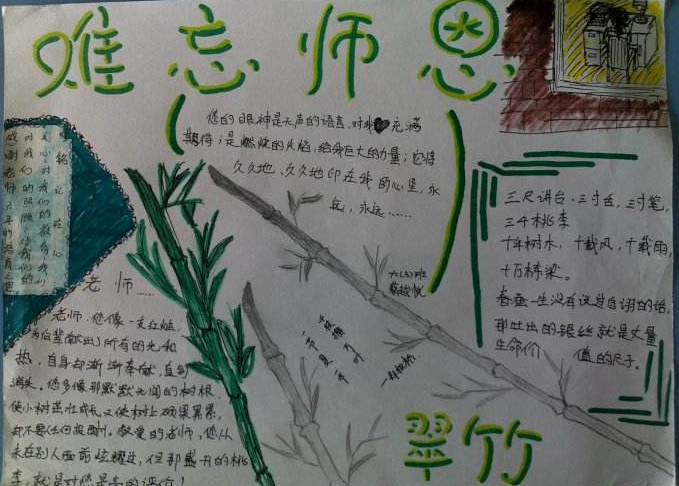 难忘师恩
您的眼神是无声的语言，对我充满
期待；是燃烧的火焰，给我巨大的力量；它将
久久地、久久地印在我的心里，永
远，永远……
三尺讲台，三寸舌，三寸笔，
三千桃李
十年树木，十载风，十载雨，
十万栋梁。
春蚕一生没有说过自诩的话，
那吐出的银丝就是丈量
生命价值的尺子。
老师……
老师，您像一支红烛，
为后辈献出了所有的光和
热，自身却渐渐奉献，直到
消失。您多像那默默无闻的树根，
使小树茁壮成长，又使树上硕果累累，
却不要任何报酬。敬爱的老师，您从
未在别人面前炫耀过，但那盛开的桃
李，就是对您最高的评价！
翠竹